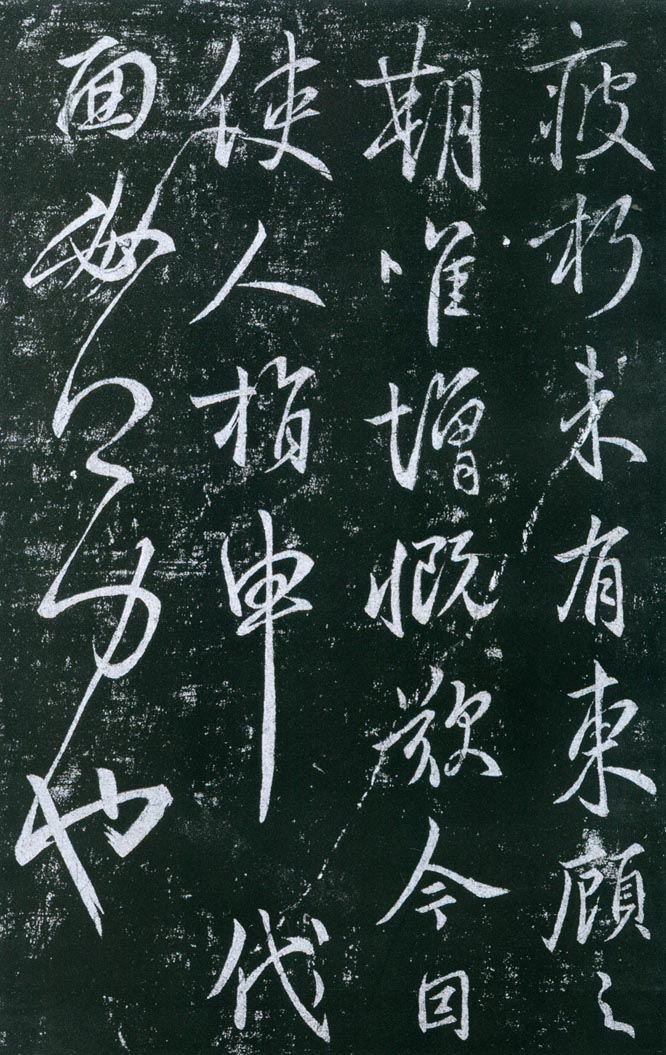 疲朽未有東顧之
期唯增慨歎今因
使人指申代
面也